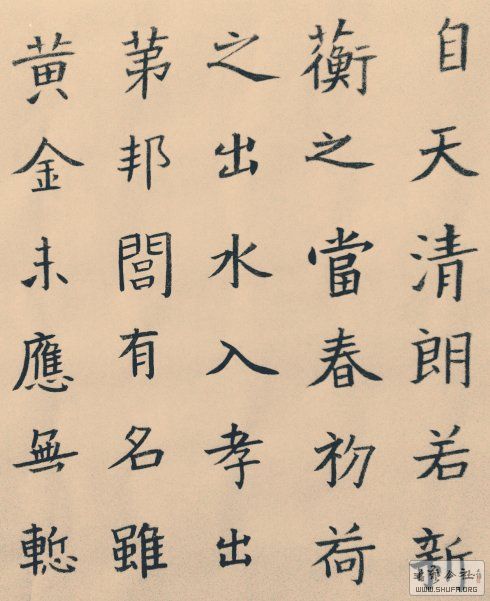 自天清朗若新
蘅之當春初荷
之出水入孝出
苐邦閭有名雖
黄金未應無慙
WWW.SHUFA.ORG